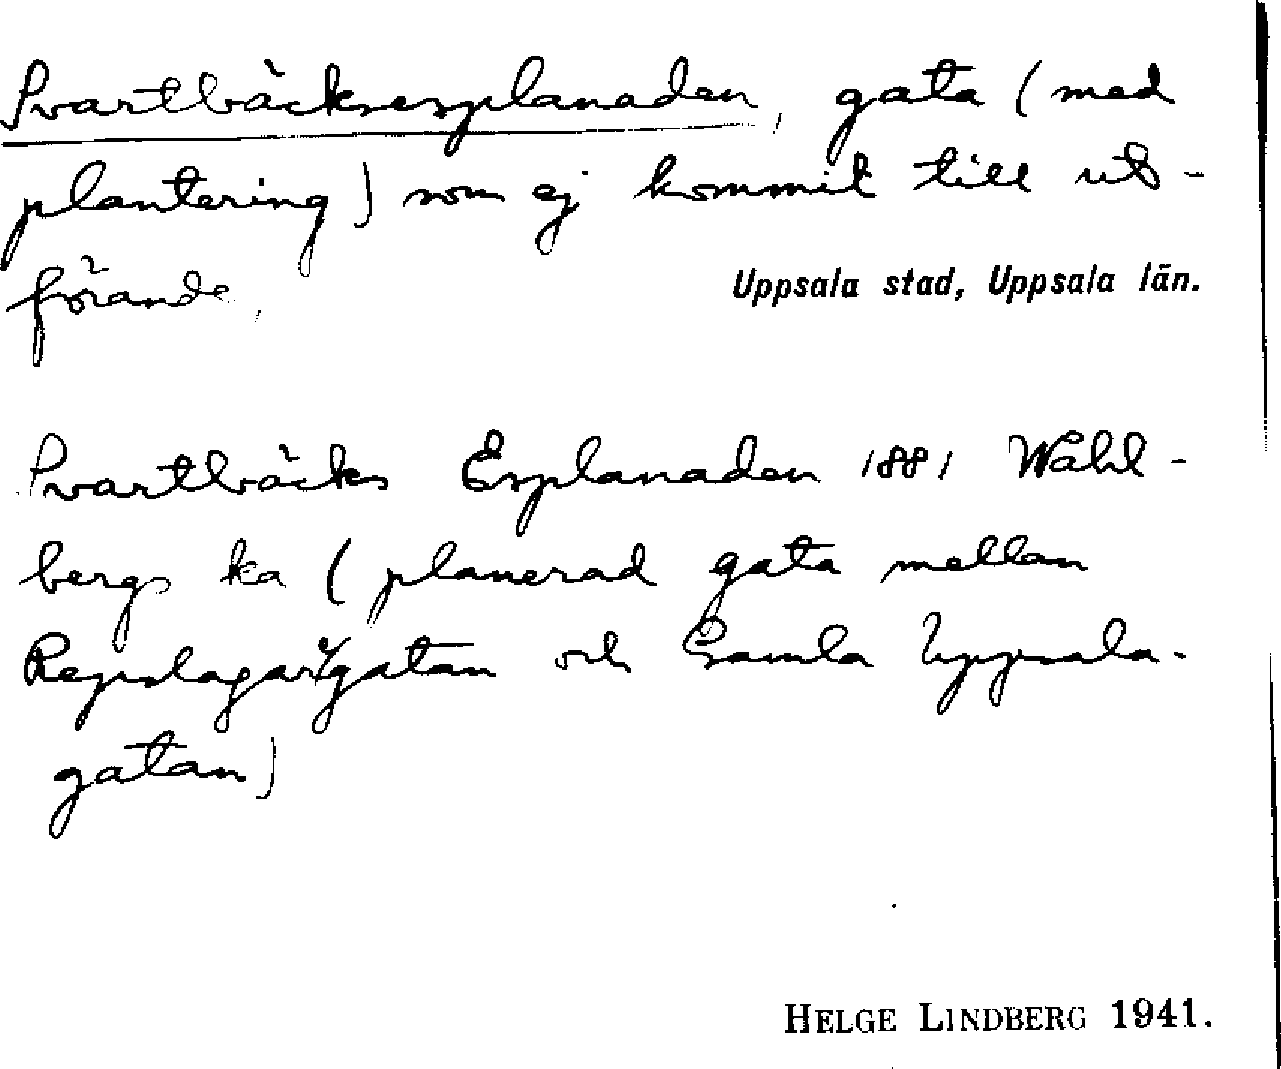 Svartbäcksesplanaden, gata (med
plantering) som ej kommit till ut-
förande.
Uppsala stad, Uppsala län.
Svartbäcks Esplanaden 1881 Wahl-
bergs ka (planerad gata mellan
Repslagargatan och Gamla Uppsala-
gatan)
HELGE LINDBERG 1941.